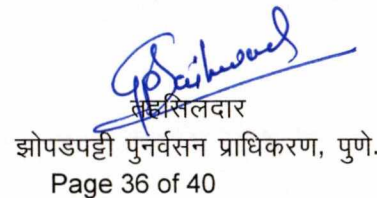 तहसिलदार
झोपडपट्टी पुनर्वसन प्राधिकरण, पुणे.
Page 36 of 40